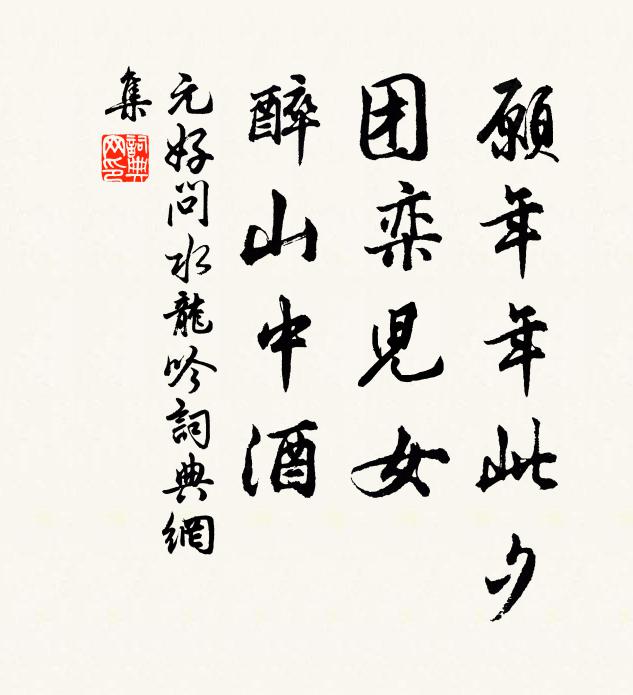 願年年此夕
团栾児女
醉山中酒
元好问水龍吟詞典網
集
詞典網印